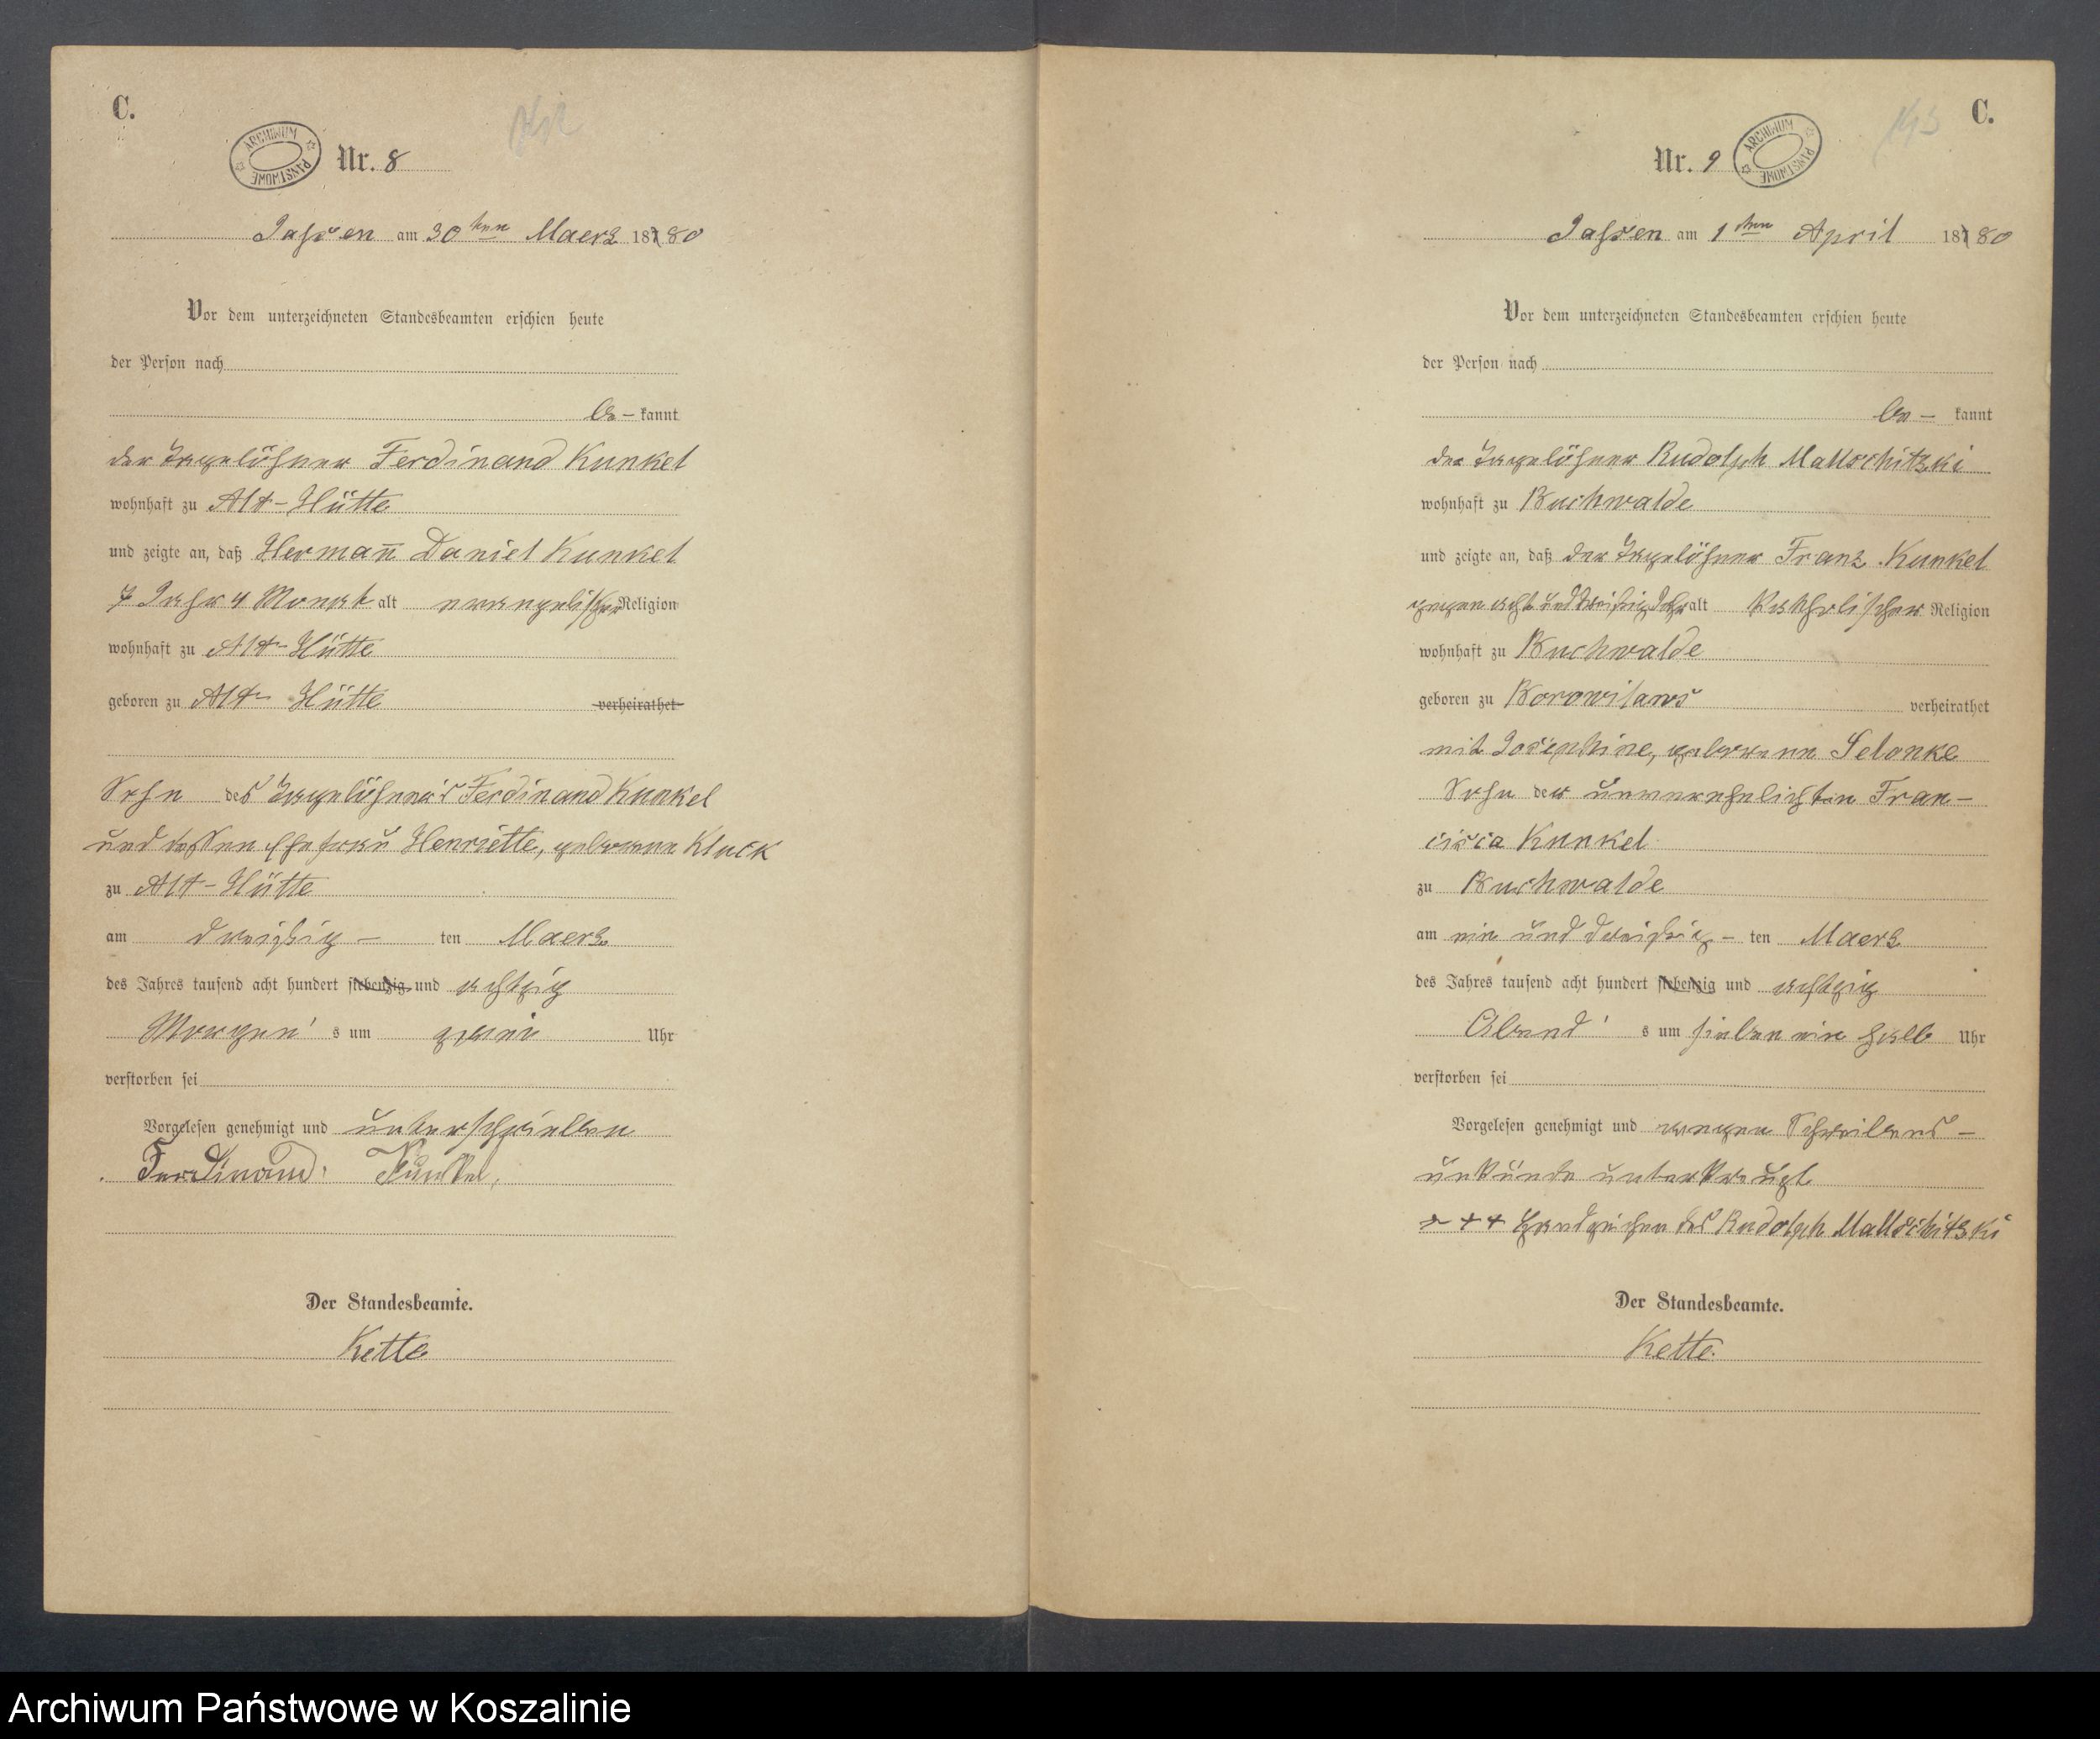 C.
ARCHIWUM PAŃSTWOWE
Nr. 8
Jassen am 30ten Maerz 1880
Vor dem unterzeichneten Standesbeamten erschien heute
der Person nach
be- kannt
der Tagelöhner Ferdinand Kunkel
wohnhaft zu Alt-Hütte
und zeigte an, daß Hermann Daniel Kunkel
7 Jahr 4 Monat alt evangelischer Religion
wohnhaft zu Alt-Hütte
geboren zu Alt-Hütte verheirathet
Sohn des Tagelöhners Ferdinand Kunkel
und dessen Ehefrau Henriette, geborene Kluck
zu Alt-Hütte
am dreißig - ten Maerz
des Jahres tausend acht hundert siebenzig und achtzig
Morgen's um zwei Uhr
verstorben sei
Vorgelesen genehmigt und unterschrieben
Ferdinand Kunkel
Der Standesbeamte.
Kette
C.
Nr. 9
ARCHIWUM PAŃSTWOWE
Jassen am 1ten April 1880
Vor dem unterzeichneten Standesbeamten erschien heute
der Person nach
be- kannt
der Tagelöhner Rudolph Mallschitzki
wohnhaft zu Buchwalde
und zeigte an, daß der Tagelöhner Franz Kunkel
gegen acht und dreißig Jahr alt katholischer Religion
wohnhaft zu Buchwalde
geboren zu verheirathet
mit Josephine, geborenen Selonke
Sohn der unverehelichten Fran-
cisca Kunkel
zu Buchwalde
am ein und dreißig - ten Maerz
des Jahres tausend acht hundert siebenzig und achtzig
Abend's um sieben ein halb Uhr
verstorben sei
Vorgelesen genehmigt und wegen Schreibens-
unkunde unterkreuzt
+++ Handzeichen des Rudolph Mallschitzki
Der Standesbeamte.
Kette.
Archiwum Państwowe w Koszalinie